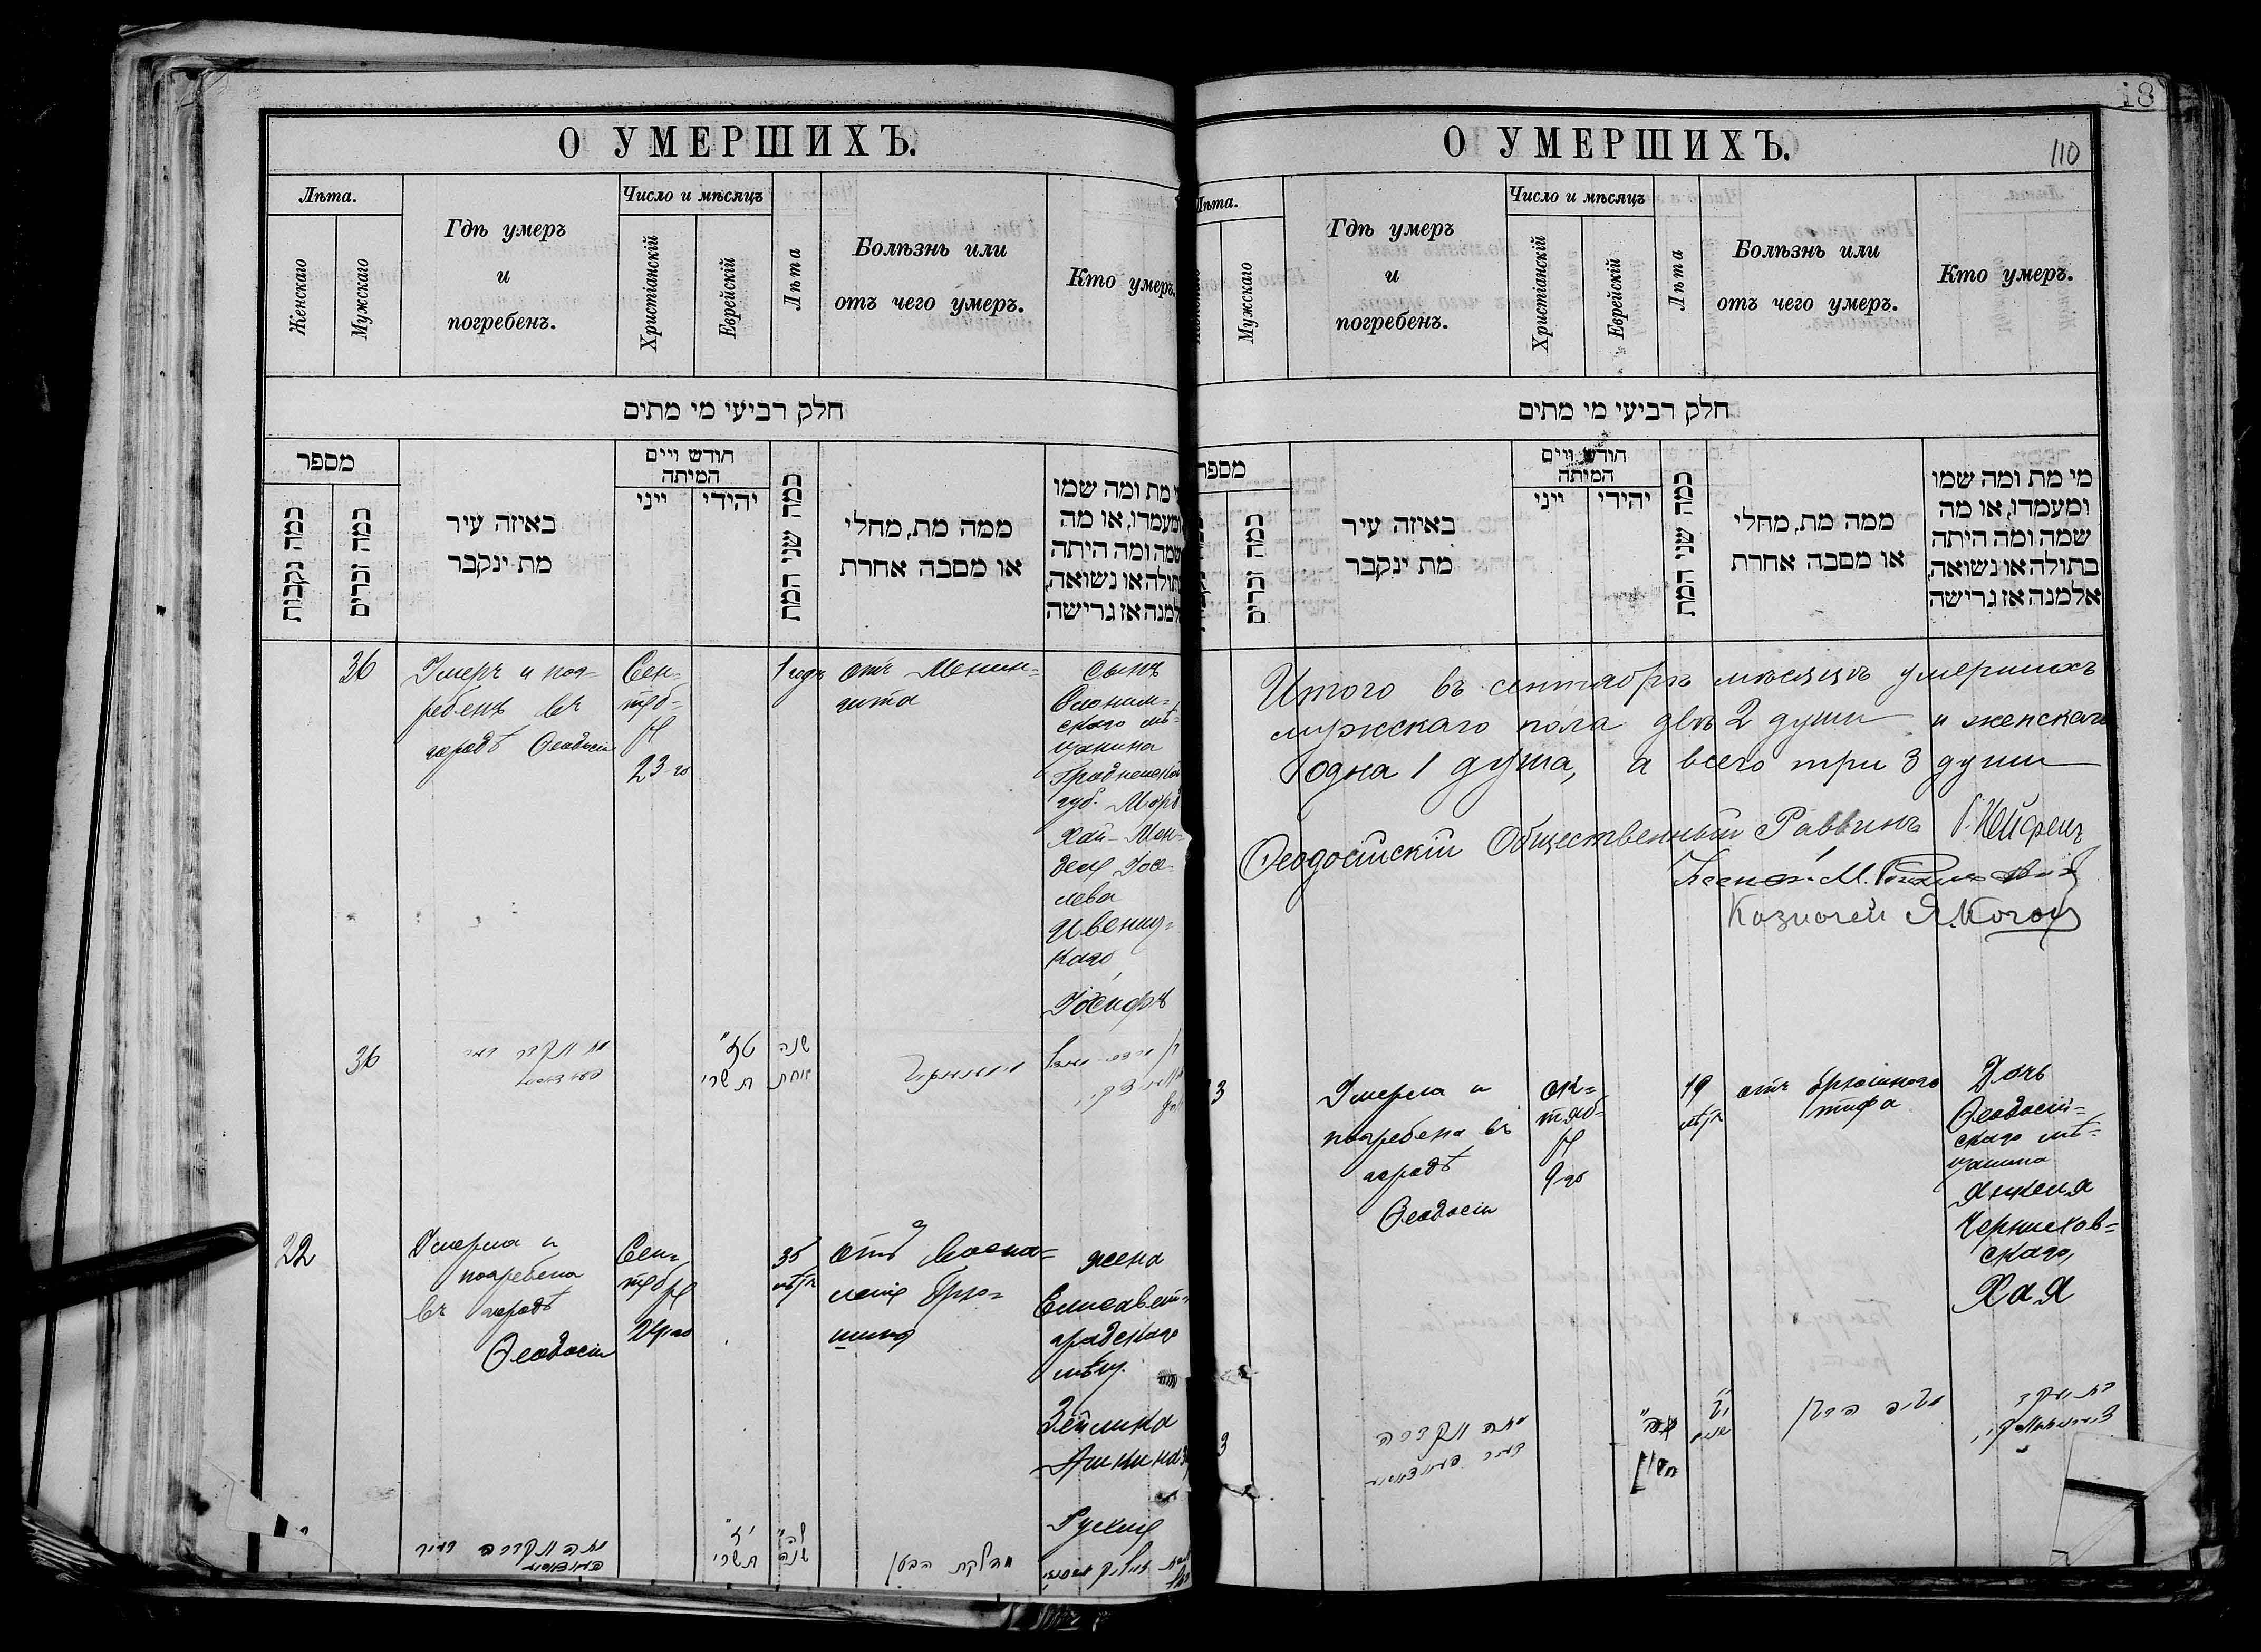 О УМЕРШИХЪ.
Лѣта.
Женскаго
Мужскаго
Гдѣ умеръ
и
погребенъ.
Число и мѣсяцъ
Христіанскій
Еврейскій
Лѣта
Болѣзнь или
отъ чего умеръ.
Кто умеръ.
חלק רביעי מי מתים
מספר
כמה נקבות
כמה זכרים
באיזה עיר
מת ינקבר
חודש ויים
המיתה
ייני
יהידי
כמה שני המת
ממה מת, מחלי
או מסבה אחרת
מת ומה שמו
ומעמדו, או מה
שמה ומה היתה
בתולה או נשואה,
אלמנה אז גרישה
36
Умеръ и пог-
ребенъ въ
городѣ Ѳеодосіи
Сен-
тяб-
ря
23-го
1 годъ
отъ Менин-
гита
сынъ
Слоним-
скаго мѣ-
щанина
Гродненской
губ. Морд
хай-Мен-
деля Іосе-
лева
Ивениц-
каго
Іосифъ
36
שנה
אחת
תשרי
22
Умерла и
погребена
въ городѣ
Ѳеодосіи
Сен-
тября
24-го
35
лѣтъ
отъ Воспа-
ленія Брю-
шины
жена
Елисавет-
градскаго
мѣщ.
Зейлика
Ашкиназ
Рухля
ל״ה
שנה
י״ז
תשרי
דלקת הבטן
О УМЕРШИХЪ.
18
110
Лѣта.
Мужскаго
Гдѣ умеръ
и
погребенъ.
Число и мѣсяцъ
Христіанскій
Еврейскій
Лѣта
Болѣзнь или
отъ чего умеръ.
Кто умеръ.
חלק רביעי מי מתים
מספר
כמה זכרים
באיזה עיר
מת ינקבר
חודש ויים
המיתה
ייני
יהידי
כמה שני המת
ממה מת, מחלי
או מסבה אחרת
מי מת ומה שמו
ומעמדו, או מה
שמה ומה היתה
בתולה או נשואה,
אלמנה אז גרישה
Итого въ сентябрѣ мѣсяцѣ умершихъ
мужскаго пола двѣ 2 души и женскаго
одна 1 душа, а всего три 3 души
Ѳеодосійскій Общественный Раввинъ
Казначей
3
Умерла и
погребена въ
городѣ
Ѳеодосіи
Ок-
тяб-
ря
9-го
19
лѣтъ
отъ брюшного
тифа
Дочь
Ѳеодосій-
скаго мѣ-
щанина
Янкеля
Черняхов-
скаго,
Хая
3